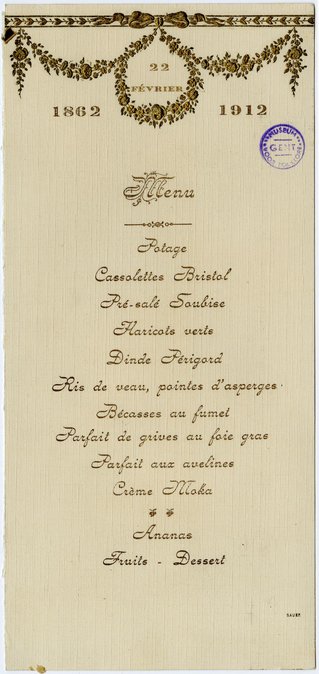 22
FÉVRIER
1862 1912
MUSEUM
GENT
Menu
Potage
Cassolettes Bristol
Pré-salé Soubise
Haricots verts
Dinde Périgord
Ris de veau, pointes d'asperges
Bécasses au fumet
Parfait de grives au foie gras
Parfait aux avelines
Crème Moka
Ananas
Fruits - Dessert